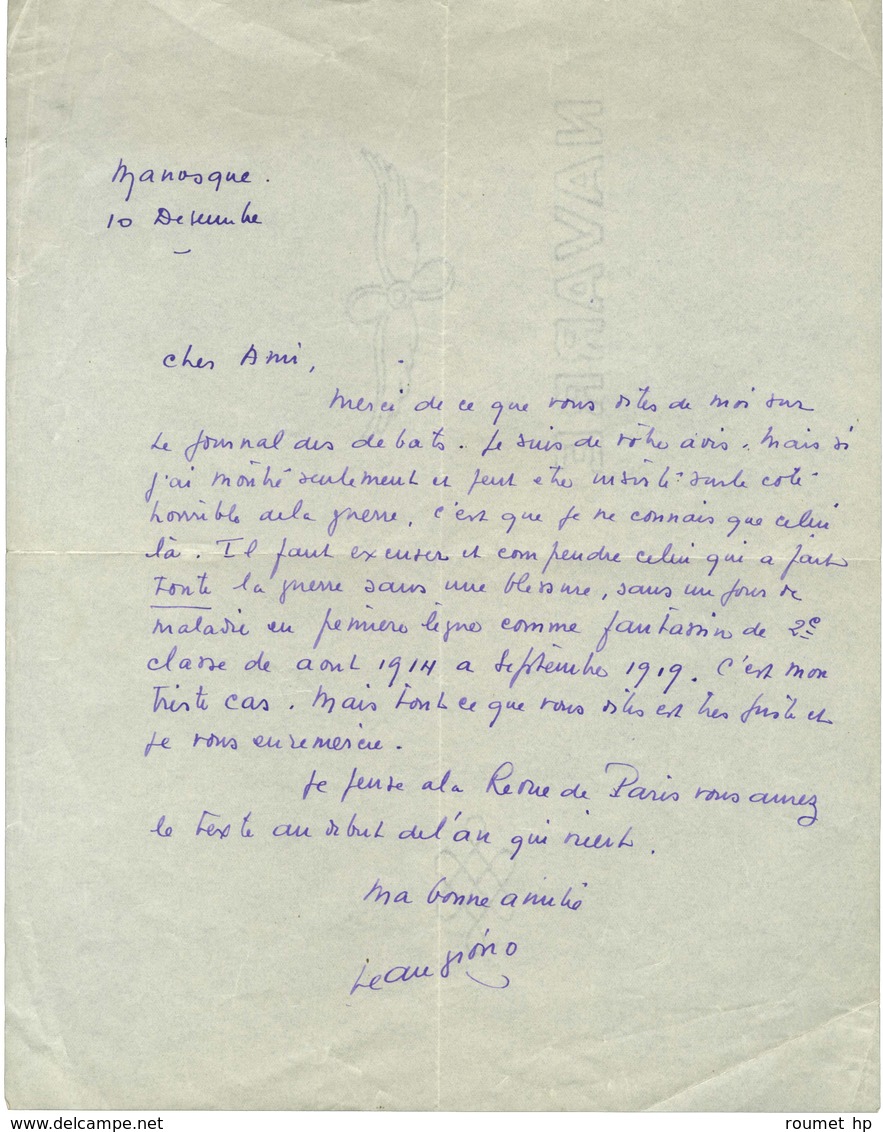 Manosque.
10 Decembre
cher Ami,
Merci de ce que vous dites de moi sur
le journal des debats. Je suis de votre avis. Mais si
j'ai montré seulement et peut etre insisté sur le coté
horrible de la guerre, c'est que je ne connais que celui
là. Il faut excuser et comprendre celui qui a fait
toute la guerre sans une blessure, sans un jour de
maladie en premiere ligne comme fantassin de 2e
classe de aout 1914 a Septembre 1919. C'est mon
triste cas. Mais tout ce que vous dites est tres juste et
je vous en remercie.
Je pense a la Revue de Paris vous aurez
le texte au debut de l'an qui vient.
Ma bonne amitié
Jean giono
NAVARRE
delcampe.net
roumet hp